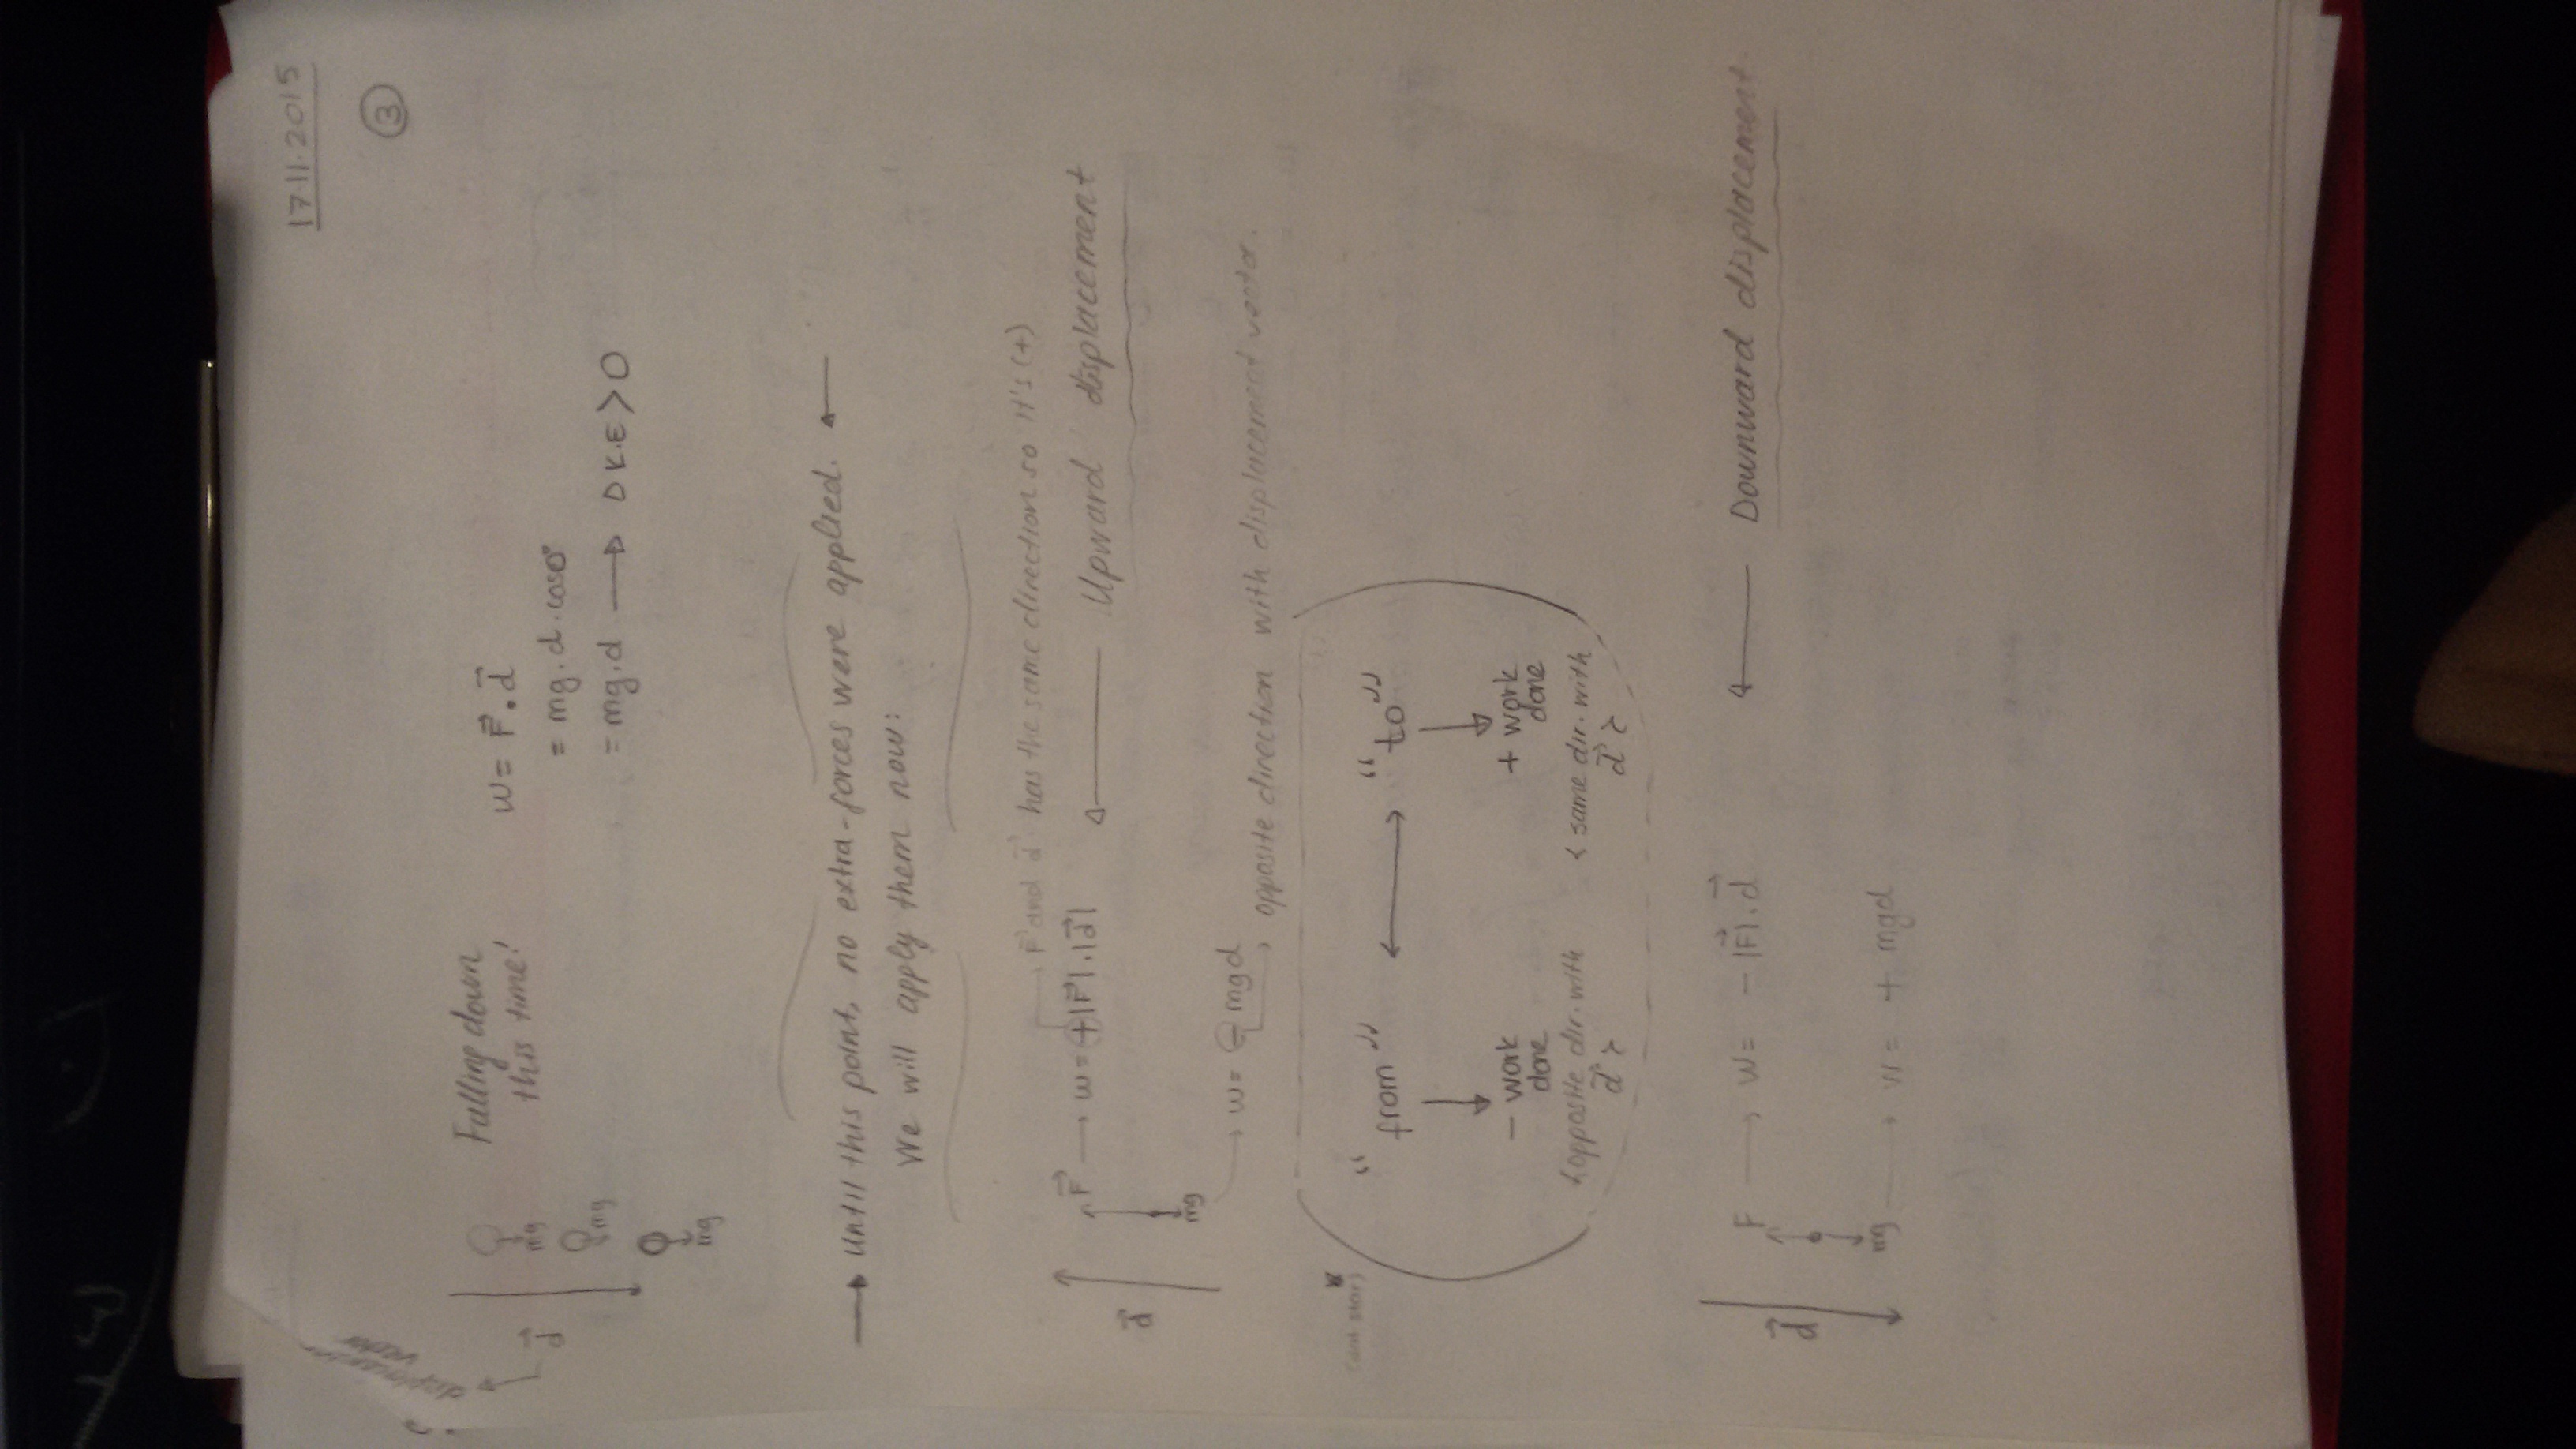 17.11.2015
3
displacement
vector
d⃗
mg
mg
mg
Falling down
this time!
W = F⃗ . d⃗
= mg . d . cos0°
= mg . d → Δ K.E > 0
→ Until this point, no extra-forces were applied. ←
We will apply them now:
→ F⃗ and d⃗ has the same direction so it's (+)
d⃗
F⃗ → W = + |F⃗| . |d⃗| ← Upward displacement
mg
→ W = - mgd
→ opposite direction with displacement vector.
"from" ↔ "to"
- work
done
<opposite dir. with
d⃗>
+ work
done
< same dir. with
d⃗>
d⃗
F → W = - |F⃗| . d⃗ ← Downward displacement
mg → W = + mgd